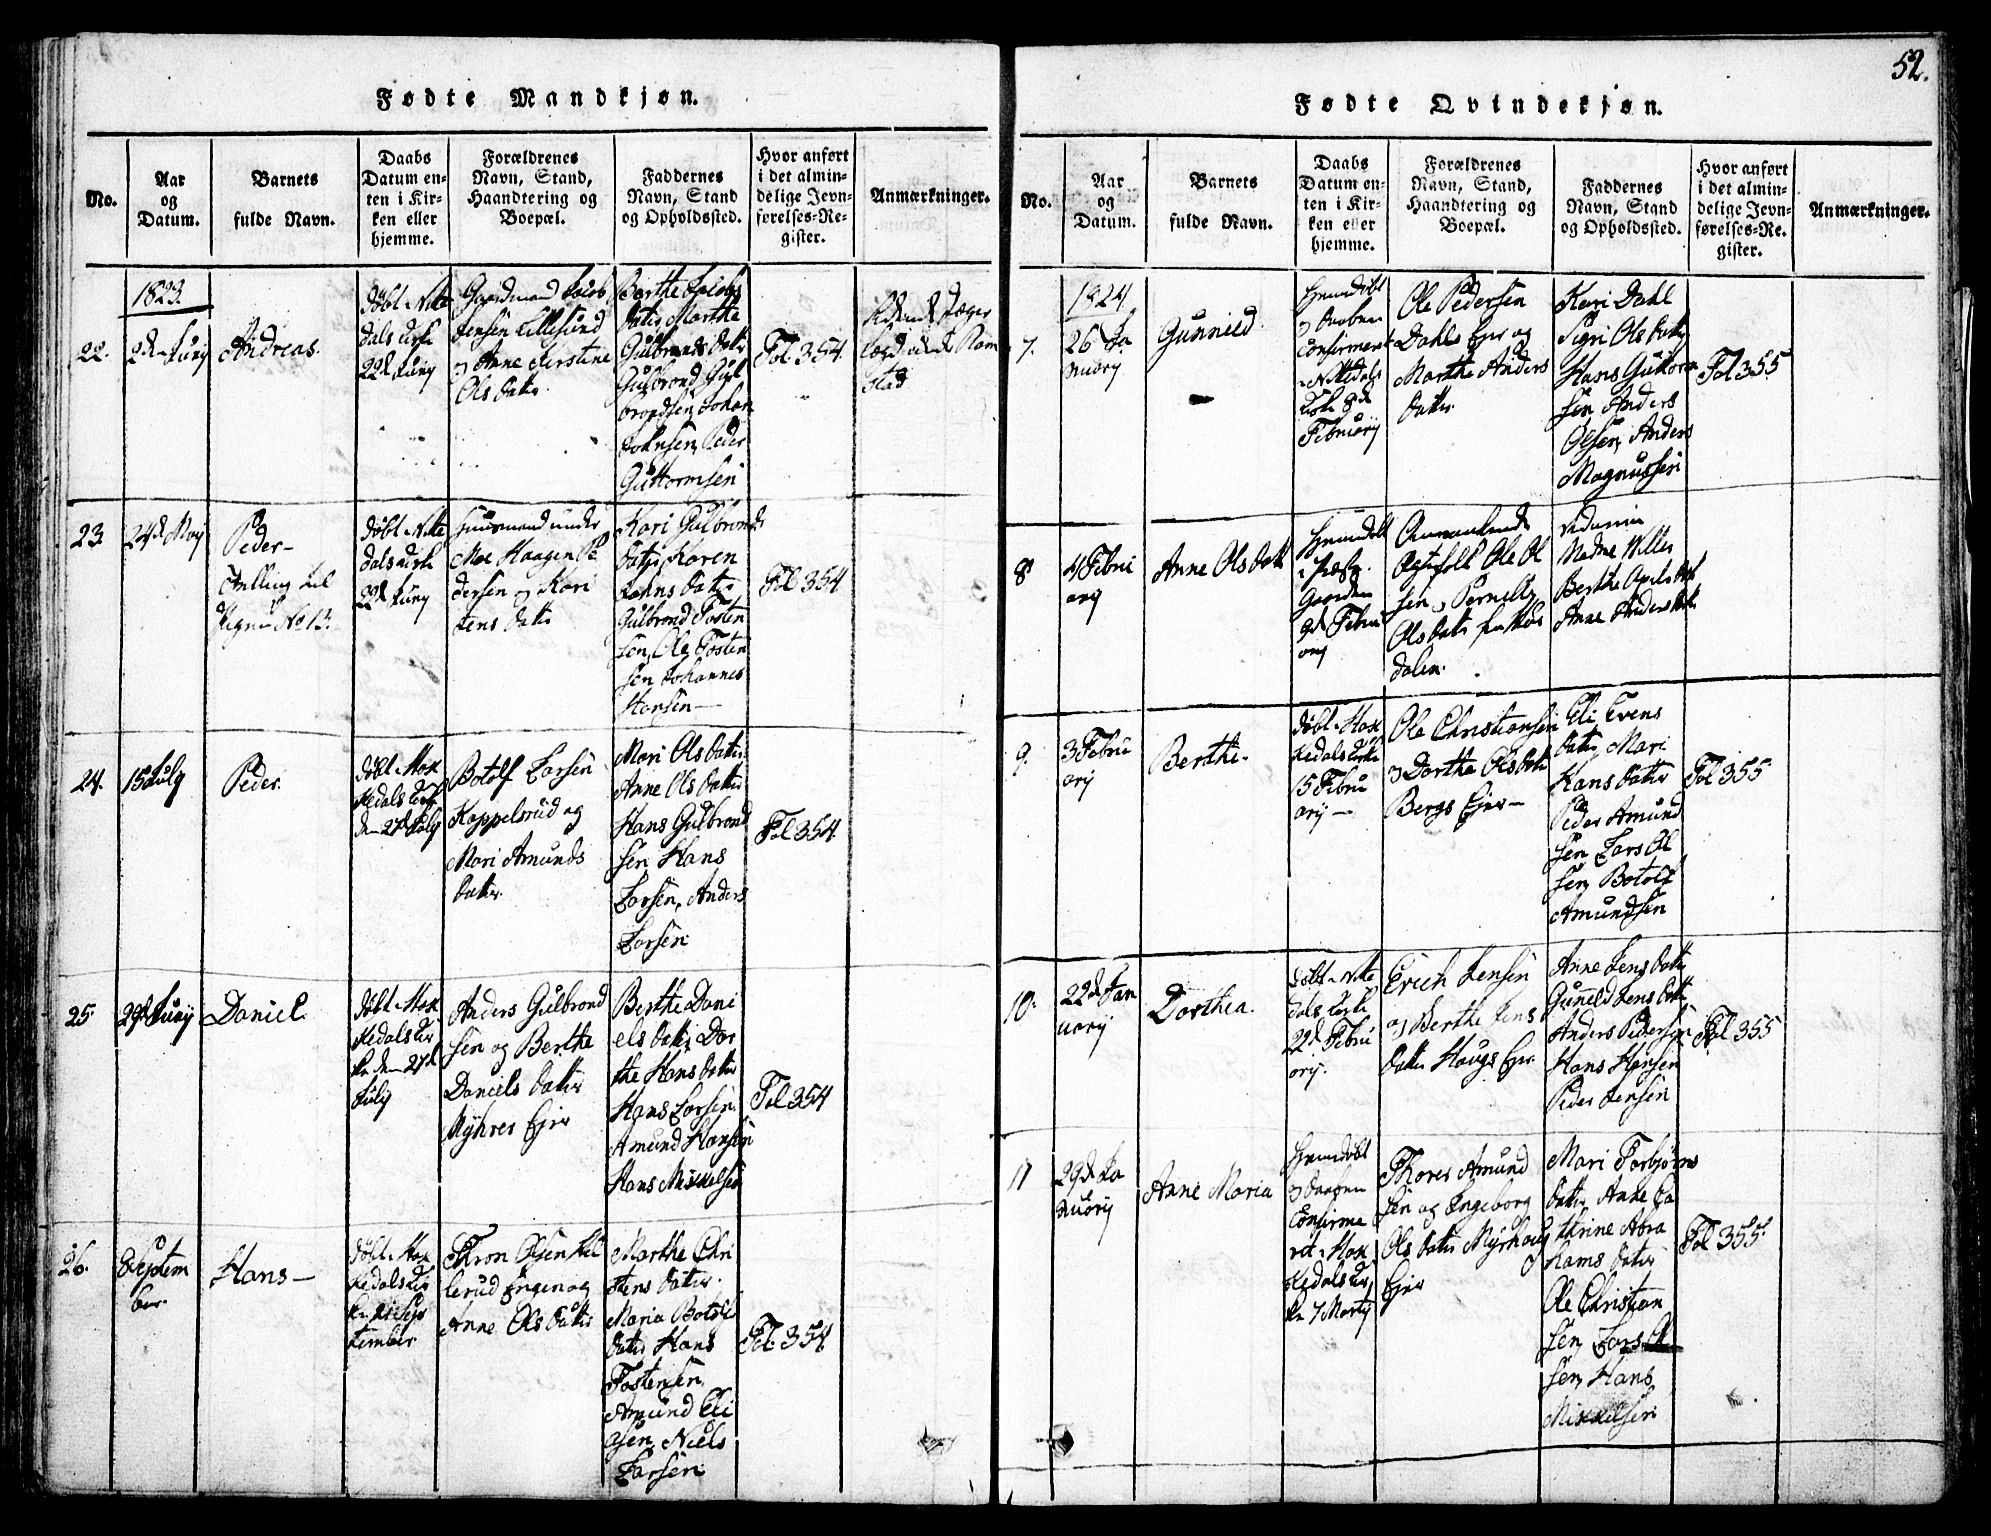 52.
Fødte Mandkjøn.
No.
Aar
og
Datum.
Barnets
fulde Navn.
Daabs
Datum en-
ten i Kir-
ken eller
hjemme.
Forældrenes
Navn, Stand,
Haandtering og
Boepæl.
Faddernes
Navn, Stand
og Opholdssted.
Hvor anført
i det almin-
delige Jevn-
førelses-Re-
gister.
Anmærkninger.
1823.
22.
Andreas.
døbt i Nitte
dals Kirke
22d Juny
Gaardmand Jacob
Jensen Lillesund
og Anne Kirstine
Ols datter
Berthe Jacobs
datter Marthe
Gulbrands datt
Gulbrand Gul
brandsen, Johan
Johnsen, Peder
Guttormsen
Fol. 354
23
24d May
Peder-
Tvilling til
No 13.
døbt i Nitte
dals Kirke
22d Juny
Huusmand under
Moe Haagen Pe
dersen og Kari
Jens datter
Kari Gulbrands
datter Karen
datter
Gulbrand Tosten
sen, Ole Tosten
sen Johannes
Hansen-
Fol 354
24.
15 July
Peder.
døbt i Hak
kedals Kirke
den 27d July
Botolf Larsen
Kappelsrud og
Mari Amunds
datter.
Mari Ols datter
Anne Ols datter
Hans Gulbrand
sen Hans
Larsen, Anders
Larsen
Fol 354.
25.
29d Juny
Daniel
døbt i Hak
kedals Kir
ke den 27d
July
Anders Gulbrand
sen og Berthe
Daniels datter
Myhrer Ejer
Berthe Dani
els datter Dor
the Hans datter
Hans Larsen
Amund Hansen
Hans Mikkelsen
Fol 354
26.
8 Septem
ber.
Hans-
døbt i Hak
kedals Kir
tember
Thron Olsen
lerud Engen og
Anne Ols datter
Marthe Chri
stens datter.
Maria Botolfs
datter Hans
Tostensen,
Amund Eli
asen, Niels
Larsen
Fol. 354
Fødte Qvindekjøn.
No.
Aar
og
Datum.
Barnets
fulde Navn.
Daabs
Datum en-
ten i Kir-
ken eller
hjemme.
Forældrenes
Navn, Stand,
Haandtering og
Boepæl.
Faddernes
Navn, Stand
og Opholdssted.
Hvor anført
i det almin-
delige Jevn-
førelses-Re-
gister.
Anmærkninger.
1824.
7.
26d Ja
nuary
Gunnild
Hjemdøbt
og Daaben
Confirmeret
i Nittedals
Kirke 8d
February
Ole Pedersen
Dahls Ejer og
Marthe Anders
datter.
Kari Dahl
Sigri Ols datter
Hans Guttorm
sen, Anders
Olsen, Anders
Magnussen
Fol 355
8
4 Febru
ary
Anne Ols datt
Hjemdøbt
i Præste
Gaarden
9d Febru
ary
Ægtefolk Ole Ol
sen og Pernelle
Ols datter
dalen.
Madme Wille
Berthe
Anne Anders datt
9.
3 Febru
ary
Berthe.
døbt i Hak
kedals Kirke
15 Febru
ary-
Ole Christiansen
og Dorthe Ols datter
Bergs Ejer-
Eli Evens
datter, Mari
Hans datter
Peder Amund
sen Lars Ol
sen, Botolf
Amundsen
Fol 355
10.
22d Jan
uary
Dorthea.
døbt i Nitte
dals Kirke
22d Febru
ary.
Erich Jensen
og Berthe Jens
datter Haugs Ejer.
Anne Jens datter
Gunild Jens datter
Anders Pedersen
Hans Hansen
Peder Jensen
Fol 355
11
29d Ja
nuary
Anne Maria
Hjemdøbt
og Daaben
Confirme
ret i Hak
kedals Kir
ke 7 Marty
Thores Amund
sen og Ingeborg
Ols datter Myrhaug
Ejer
Mari Torbjørns
datter Anne Ca
thrine Abra
hams datter
Ole Christian
sen, Lars
sen, Hans
Mikkelsen
Fol 355.